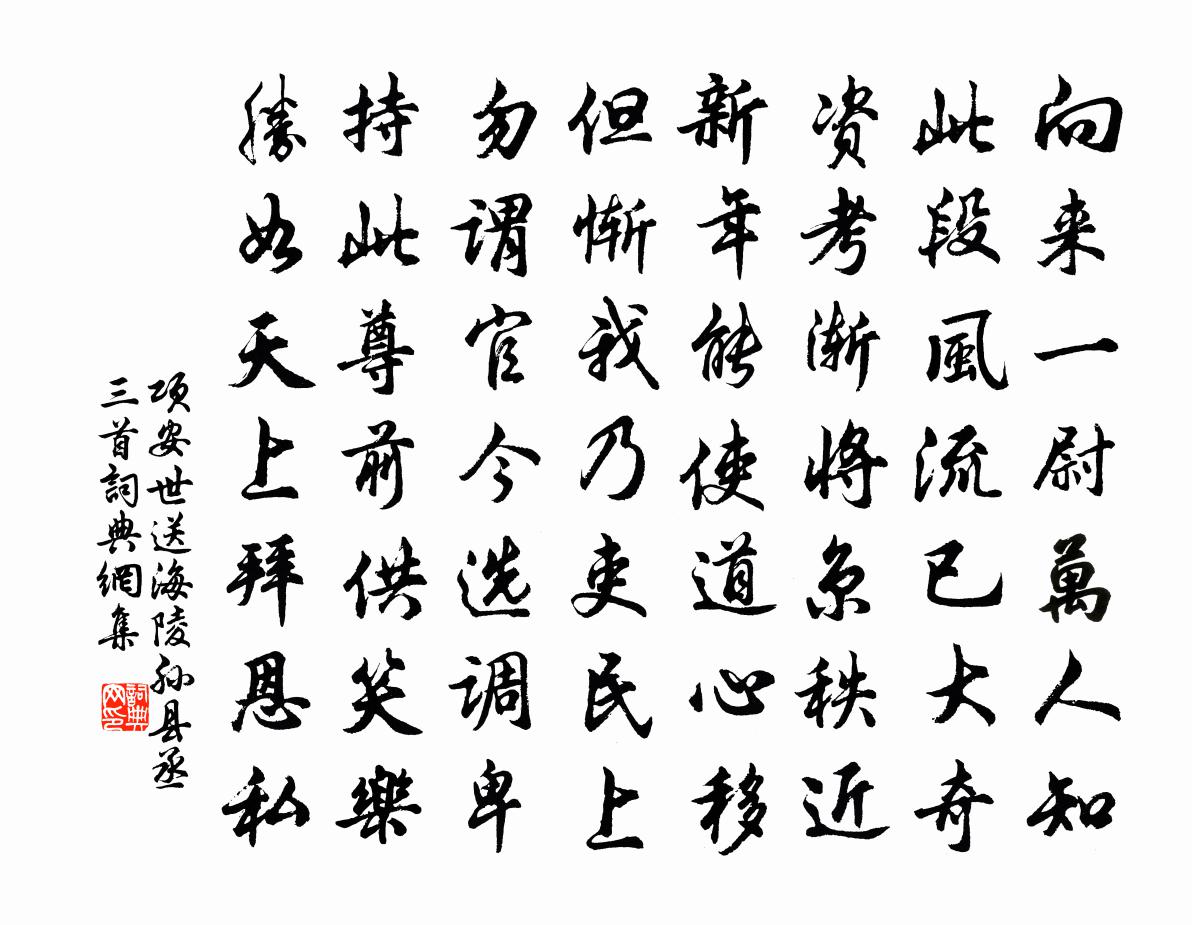 向来一尉萬人知
此段風流已大奇
资考漸将京秩近
新年能使道心移
但惭我乃吏民上
勿谓官今选调卑
持此尊前供笑樂
勝如天上拜恩私
项安世送海陵孙县丞
三首詞典網集
詞典
网印